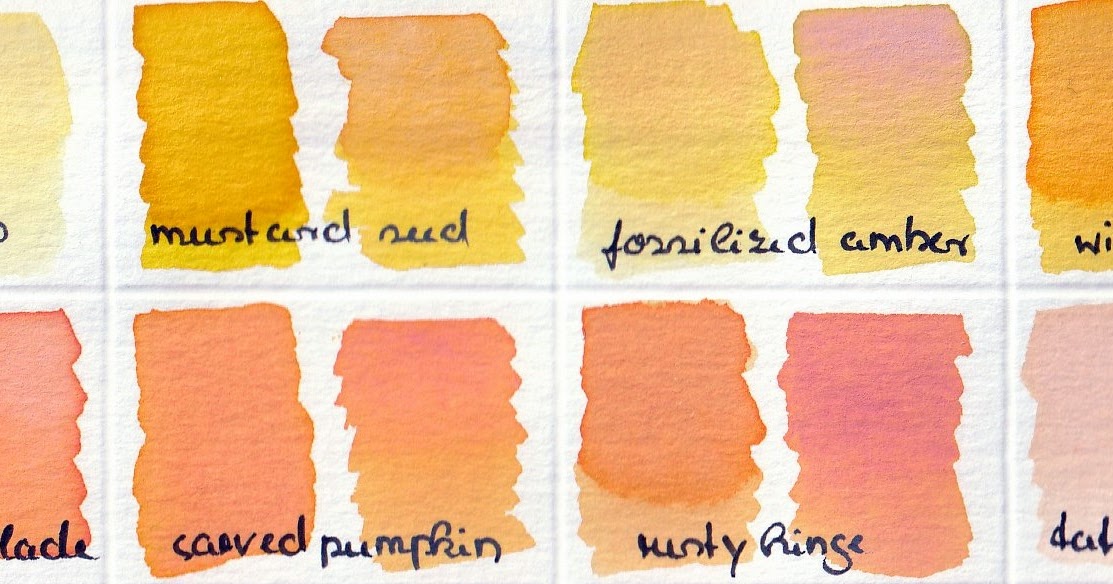 mustard seed fossilized amber wi
lade carved pumpkin rusty hinge